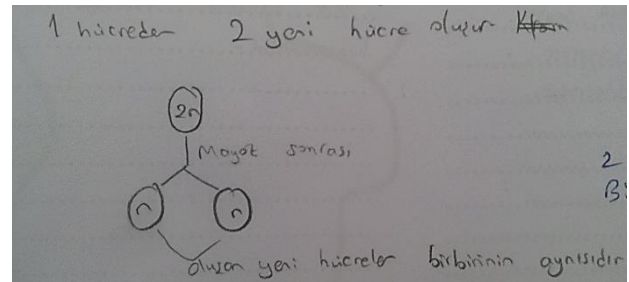 1 hücreden 2 yeni hücre oluşur
2n
Mayoz sonrası
n n
2
B:
oluşan yeni hücreler birbirinin aynısıdır